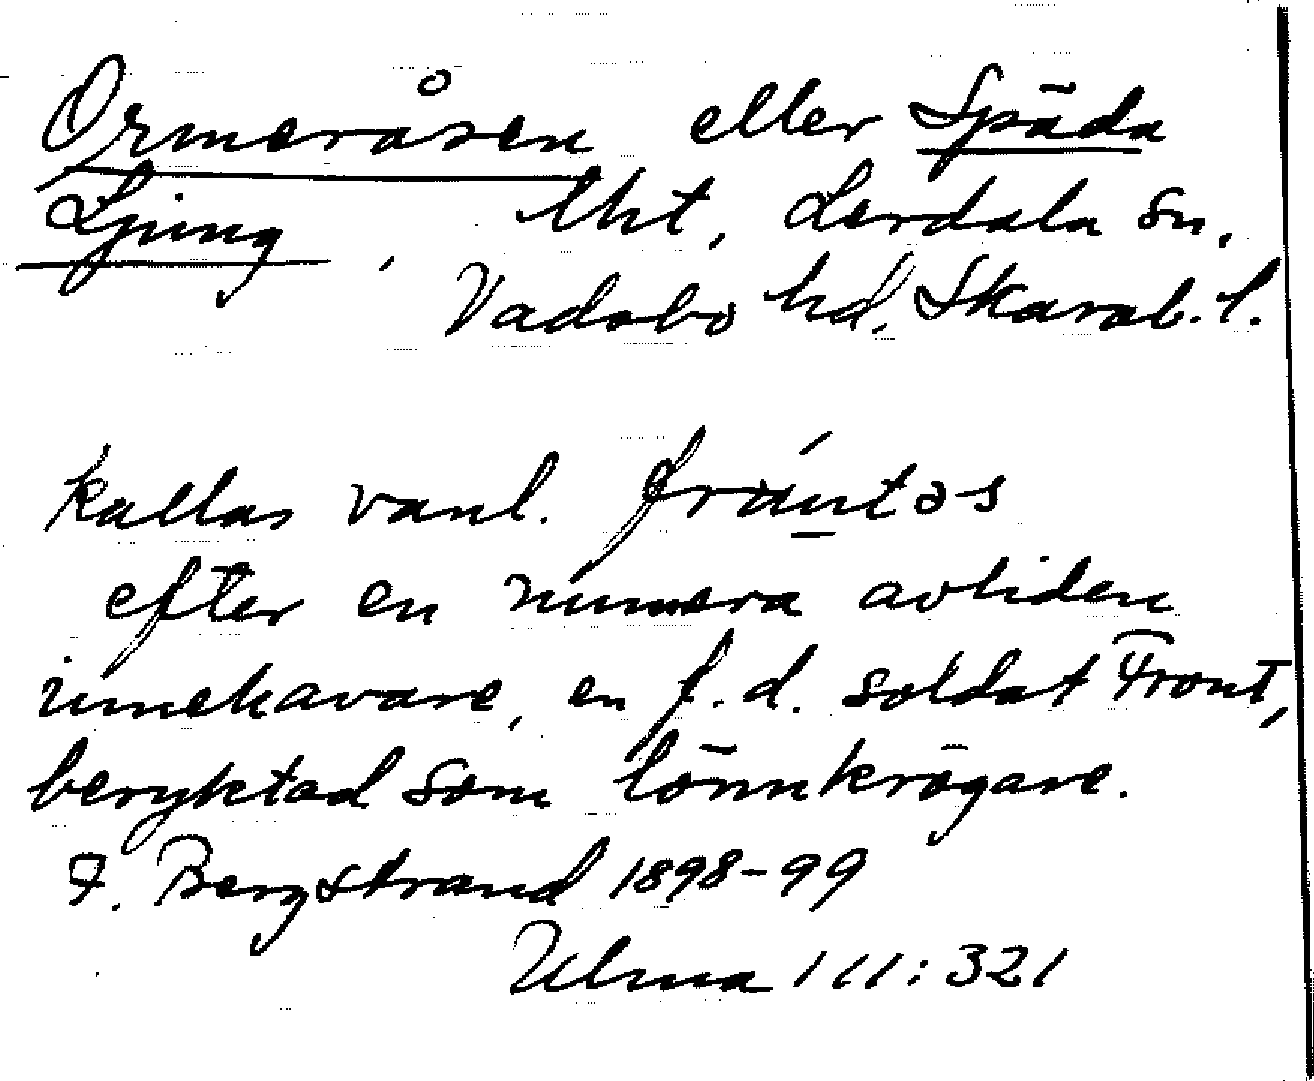 Ormeråsen eller Späda
Ljung, lht, Lerdala sn,
Vadsbo hd. Skarab. l.
kallas vanl. frántøs
efter en numera avliden
innehavare, en f.d. soldat Front,
beryktad som lönnkrögare.
F. Bergstrand 1898-99
Ulma 111:321